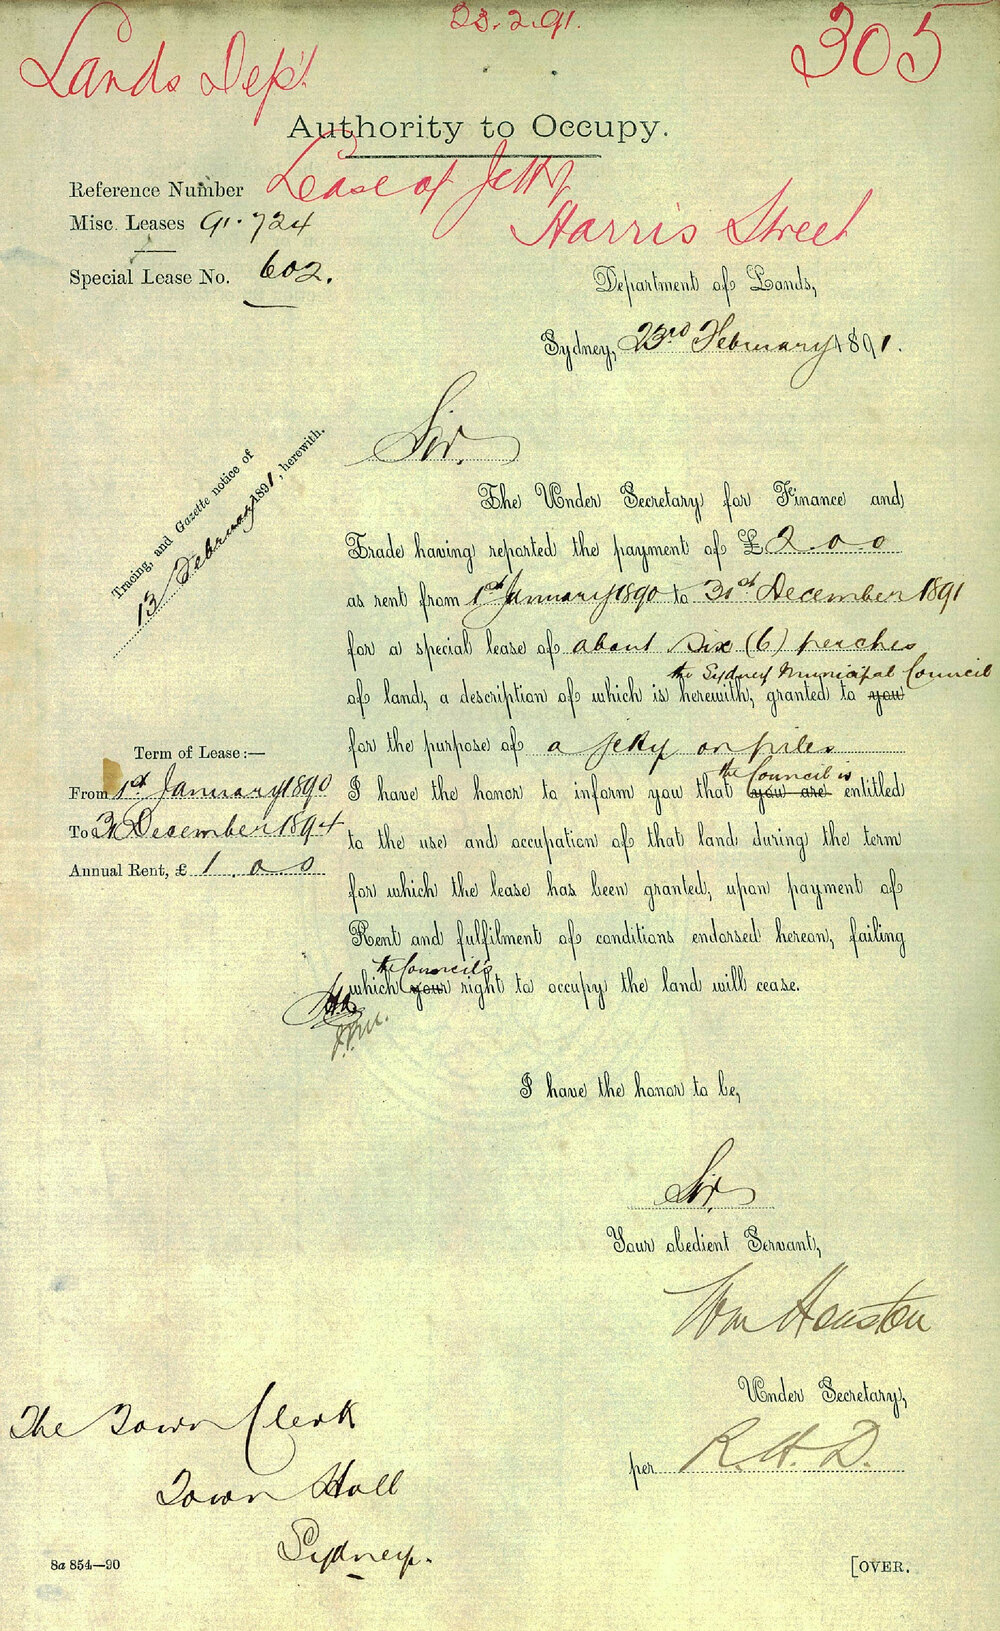 23.2.91.
305
Lands Dep't
Authority to Occupy.
Lease of Jetty
Harris Street
Reference Number
Misc. Leases 91.724
Special Lease No. 602.
Department of Lands,
Sydney, 23rd February 1891.
Sir.
Tracing, and Gazette notice of
13 February 1891, herewith.
The Under Secretary for Finance and
Trade having reported the payment of £2.0.0
as rent from 1st January 1890 to 31st December 1891
for a special lease of about six (6) perches
the Sydney Municipal Council
of land, a description of which is herewith, granted to you
for the purpose of a jetty on piles
the Council is
I have the honor to inform you that you are entitled
to the use and occupation of that land during the term
for which the lease has been granted, upon payment of
Rent and fulfilment of conditions endorsed hereon, failing
the Council's
which your right to occupy the land will cease.
Term of Lease:—
From 1st January 1890
To 31 December 1894
Annual Rent, £ 1.0.0
I have the honor to be,
Sir,
Your obedient Servant,
Wm Houston
Under Secretary,
per R.H.D.
The Town Clerk
Town Hall
Sydney.
8a 854—90
[OVER.